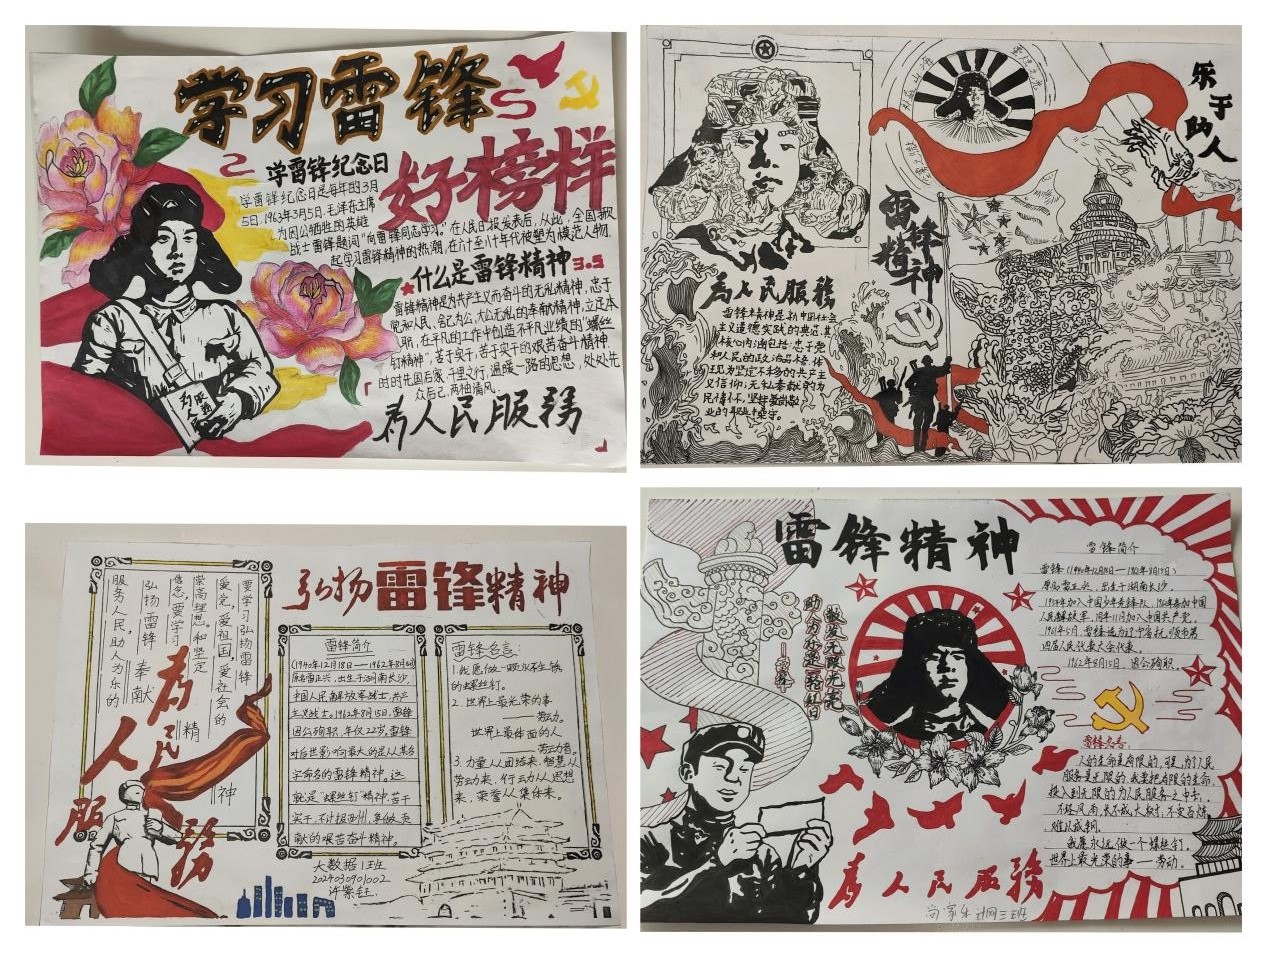 学习雷锋
好榜样
学雷锋纪念日
学雷锋纪念日是每年的3月
5日,1963年3月5日,毛泽东主席
为因公牺牲的英雄
战士雷锋题词"向雷锋同志学习",在人民日报发表后,从此,全国掀
起学习雷锋精神的热潮,在计至八十年代被塑为模范人物.
什么是雷锋精神3.5
雷锋精神是为共产主义而奋斗的无私精神,忠于
党和人民、舍己为公、大公无私的奉献精神,立足本
职、在平凡的工作中创造不平凡业绩的"螺丝
钉精神",苦干实干,
时时先国后家,千里之行,温暖一路的思想,处处先
众后己,两袖清风.
为人民服务
为人民服务
乐于
助人
雷锋
精神
为人民服务
雷锋精神是新中国社会
主义道德实践的典范,其
核心内涵包括:忠于党
和人民的政治品格,体
现为坚定不移的共产主
义信仰;无私奉献的为
民情怀,坚持爱岗敬
业的职业操守.
弘扬雷锋精神
要学习弘扬雷锋
爱党,爱祖国,爱社会的
崇高理想,和坚定
信念,要学习
弘扬雷锋奉献精神
服务人民,助人为乐的
为人民服务
雷锋简介
(1940年12月18日——1962年8月15日)
原名雷正兴,出生于湖南长沙,
中国人民解放军战士,共产
主义战士。1962年8月15日,雷锋
因公殉职,年仅22岁,雷锋
对后世影响最大的是以其名
字命名的雷锋精神。这
就是"螺丝钉"精神,苦干
实干,不计报酬,争做贡
献的艰苦奋斗精神。
雷锋名言:
1.我愿做一颗永不生锈
的螺丝钉。
2.世界上最光荣的事
——劳动。
世界上最体面的人
——劳动者。
3.力量从团结来,智慧从
劳动来,行动从思想
来,荣誉从集体来。
大数据1班
2024030901002
许紫钰
雷锋精神
雷锋简介
雷锋(1940年12月18日—1962年8月15日)
原名雷正兴,出生于湖南长沙,
1954年加入中国少年先锋队,1960年参加中国
人民解放军,同年11月加入中国共产党。
1961年5月,雷锋
四届人民代表大会代表。
1962年8月15日,因公殉职。
雷锋名言:
人的生命是有限的,可是,为人民
服务是无限的,我要把有限的生命,
投入到无限的为人民服务之中去。
不经风雨,长不成大树;不受百炼,
难以成钢。
我愿永远做一个螺丝钉。
世界上最光荣的事——劳动。
为人民服务